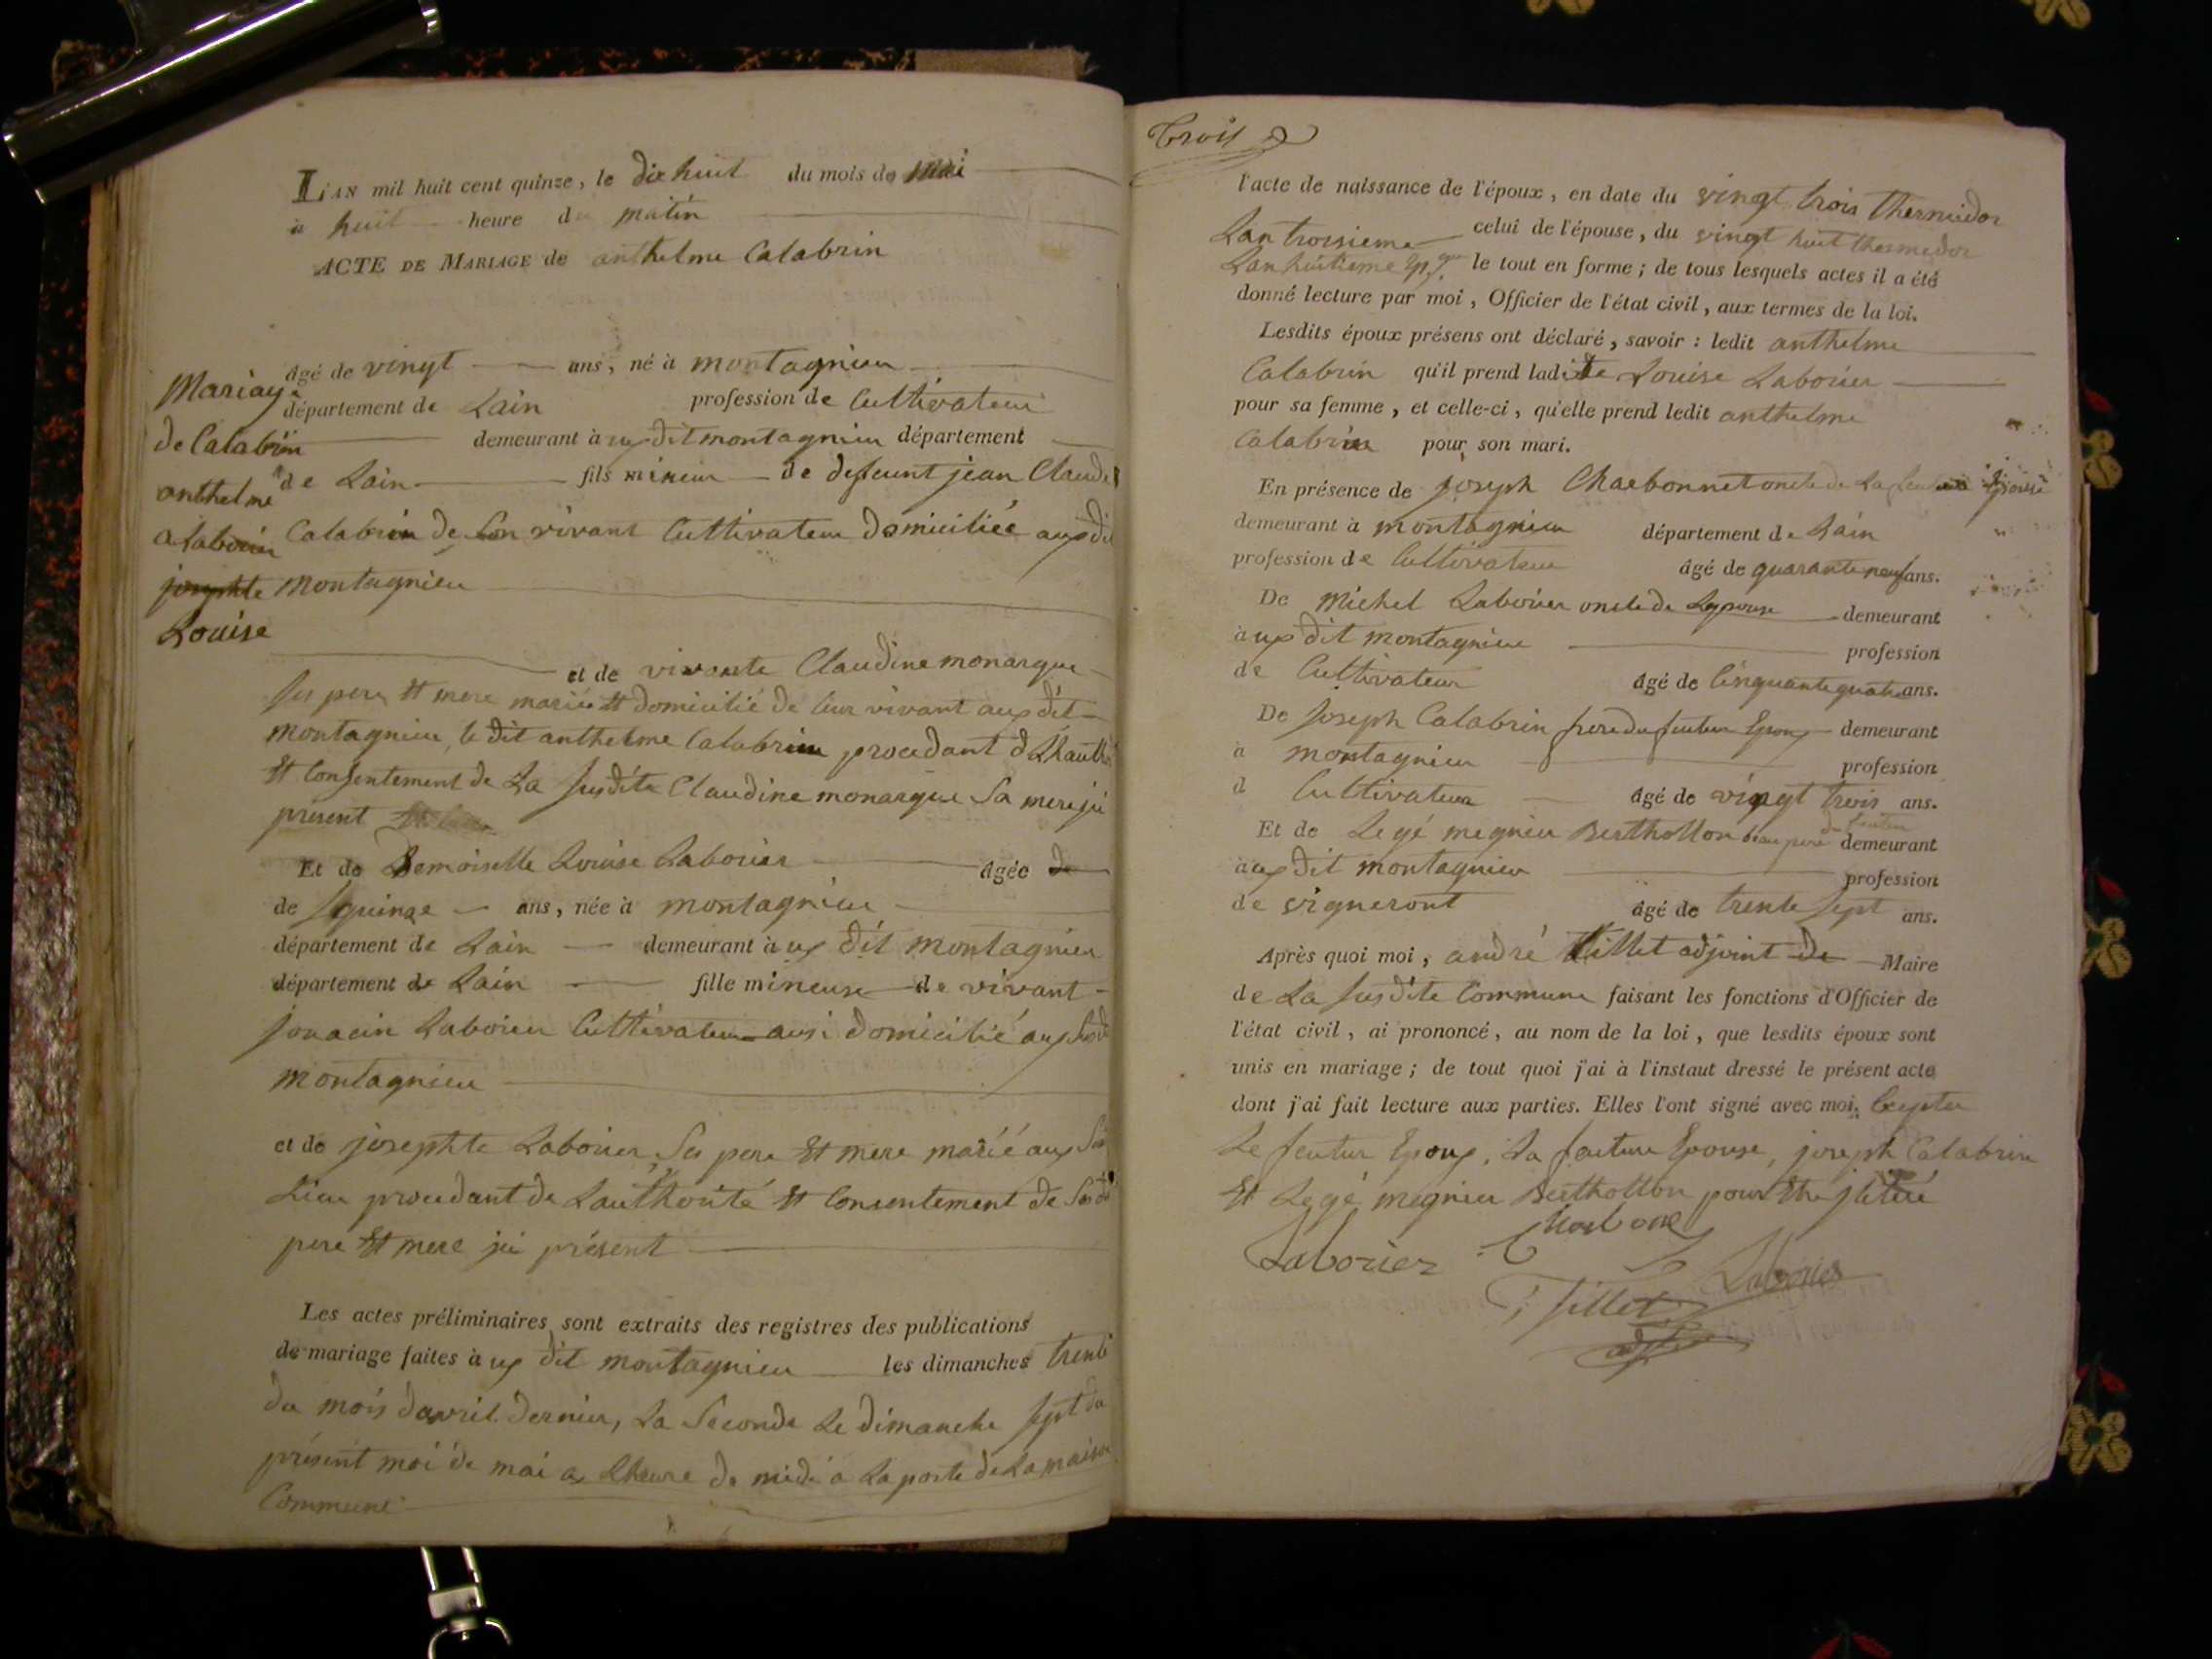 L'AN mil huit cent quinze, le dix huit du mois de Mai
à huit heure du matin
ACTE DE MARIAGE de anthelme Calabrin
âgé de vingt ans, né à montagnieu
département de Lain profession de Cultivateur
demeurant à us dit montagnieu département
de Lain fils mineur de deffeunt jean Claude
Calabrin de son vivant Cultivateur domiciliée aus dit
montagnieu
Mariage
de Calabrin
anthelme
a Laborier
josephte
Louise
et de vivante Claudine monarque
ses pere Et mere mariés Et domicilié de leur vivant aus dit
montagnieu, le dit anthelme Calabrin procedant d Lhauth
Et Consentement de La susdite Claudine monarque Sa mere jci
présent
Et de Demoiselle Louise Laborier âgée de
de quinze ans, née à montagnieu
département de Lain demeurant à us dit montagnieu
département de Lain fille mineuse de vivant
jouacin Laborier Cultivateur ausi domicilié aus susdit
montagnieu
et de josephte Laborier, Ses pere Et mere marié aus Sus
Lieu procedant de Lauthorité Et Consentement de Ses dit
pere Et mere jci présent
Les actes préliminaires sont extraits des registres des publications
de mariage faites à us dit montagnieu les dimanches trente
du mois davril dernier, La Seconde Le dimanche sept du
présent moi de mai a Lheure de midi a La porte de La maison
Commune
Trois
l'acte de naissance de l'époux, en date du vingt trois thermidor
Lan troisieme celui de l'épouse, du vingt huit thermedor
Lan huitieme le tout en forme ; de tous lesquels actes il a été
donné lecture par moi, Officier de l'état civil, aux termes de la loi.
Lesdits époux présens ont déclaré, savoir : ledit anthelme
Calabrin qu'il prend ladite Louise Laborier
pour sa femme, et celle-ci, qu'elle prend ledit anthelme
Calabrin pour son mari.
En présence de joseph Charbonnet oncle de La feuture Epouse
demeurant à montagnieu département de Lain
profession de Cultivateur âgé de quarante neuf ans.
De Michel Laborier oncle de Lepouse demeurant
à us dit montagnieu profession
de Cultivateur âgé de Cinquante quatre ans.
De joseph Calabrin frere du feutur Epoux demeurant
à montagnieu profession
d Cultivateur âgé de vingt trois ans.
Et de Legé megnieu Berthollon beau pere du feutur demeurant
à us dit montagnieu profession
de vigneront âgé de trente sept ans.
Après quoi moi, andré Tillet adjoint de Maire
de La Susdite Commune faisant les fonctions d'Officier de
l'état civil, ai prononcé, au nom de la loi, que lesdits époux sont
unis en mariage ; de tout quoi j'ai à l'instant dressé le présent acte
dont j'ai fait lecture aux parties. Elles l'ont signé avec moi, Cepter
Le feutur Epoux, La feuture Epouse, joseph Calabrin
Et Legé megnieu Berthollon pour Etre jlitéré
Laborier Charbone
Laborier
Tillet
adj